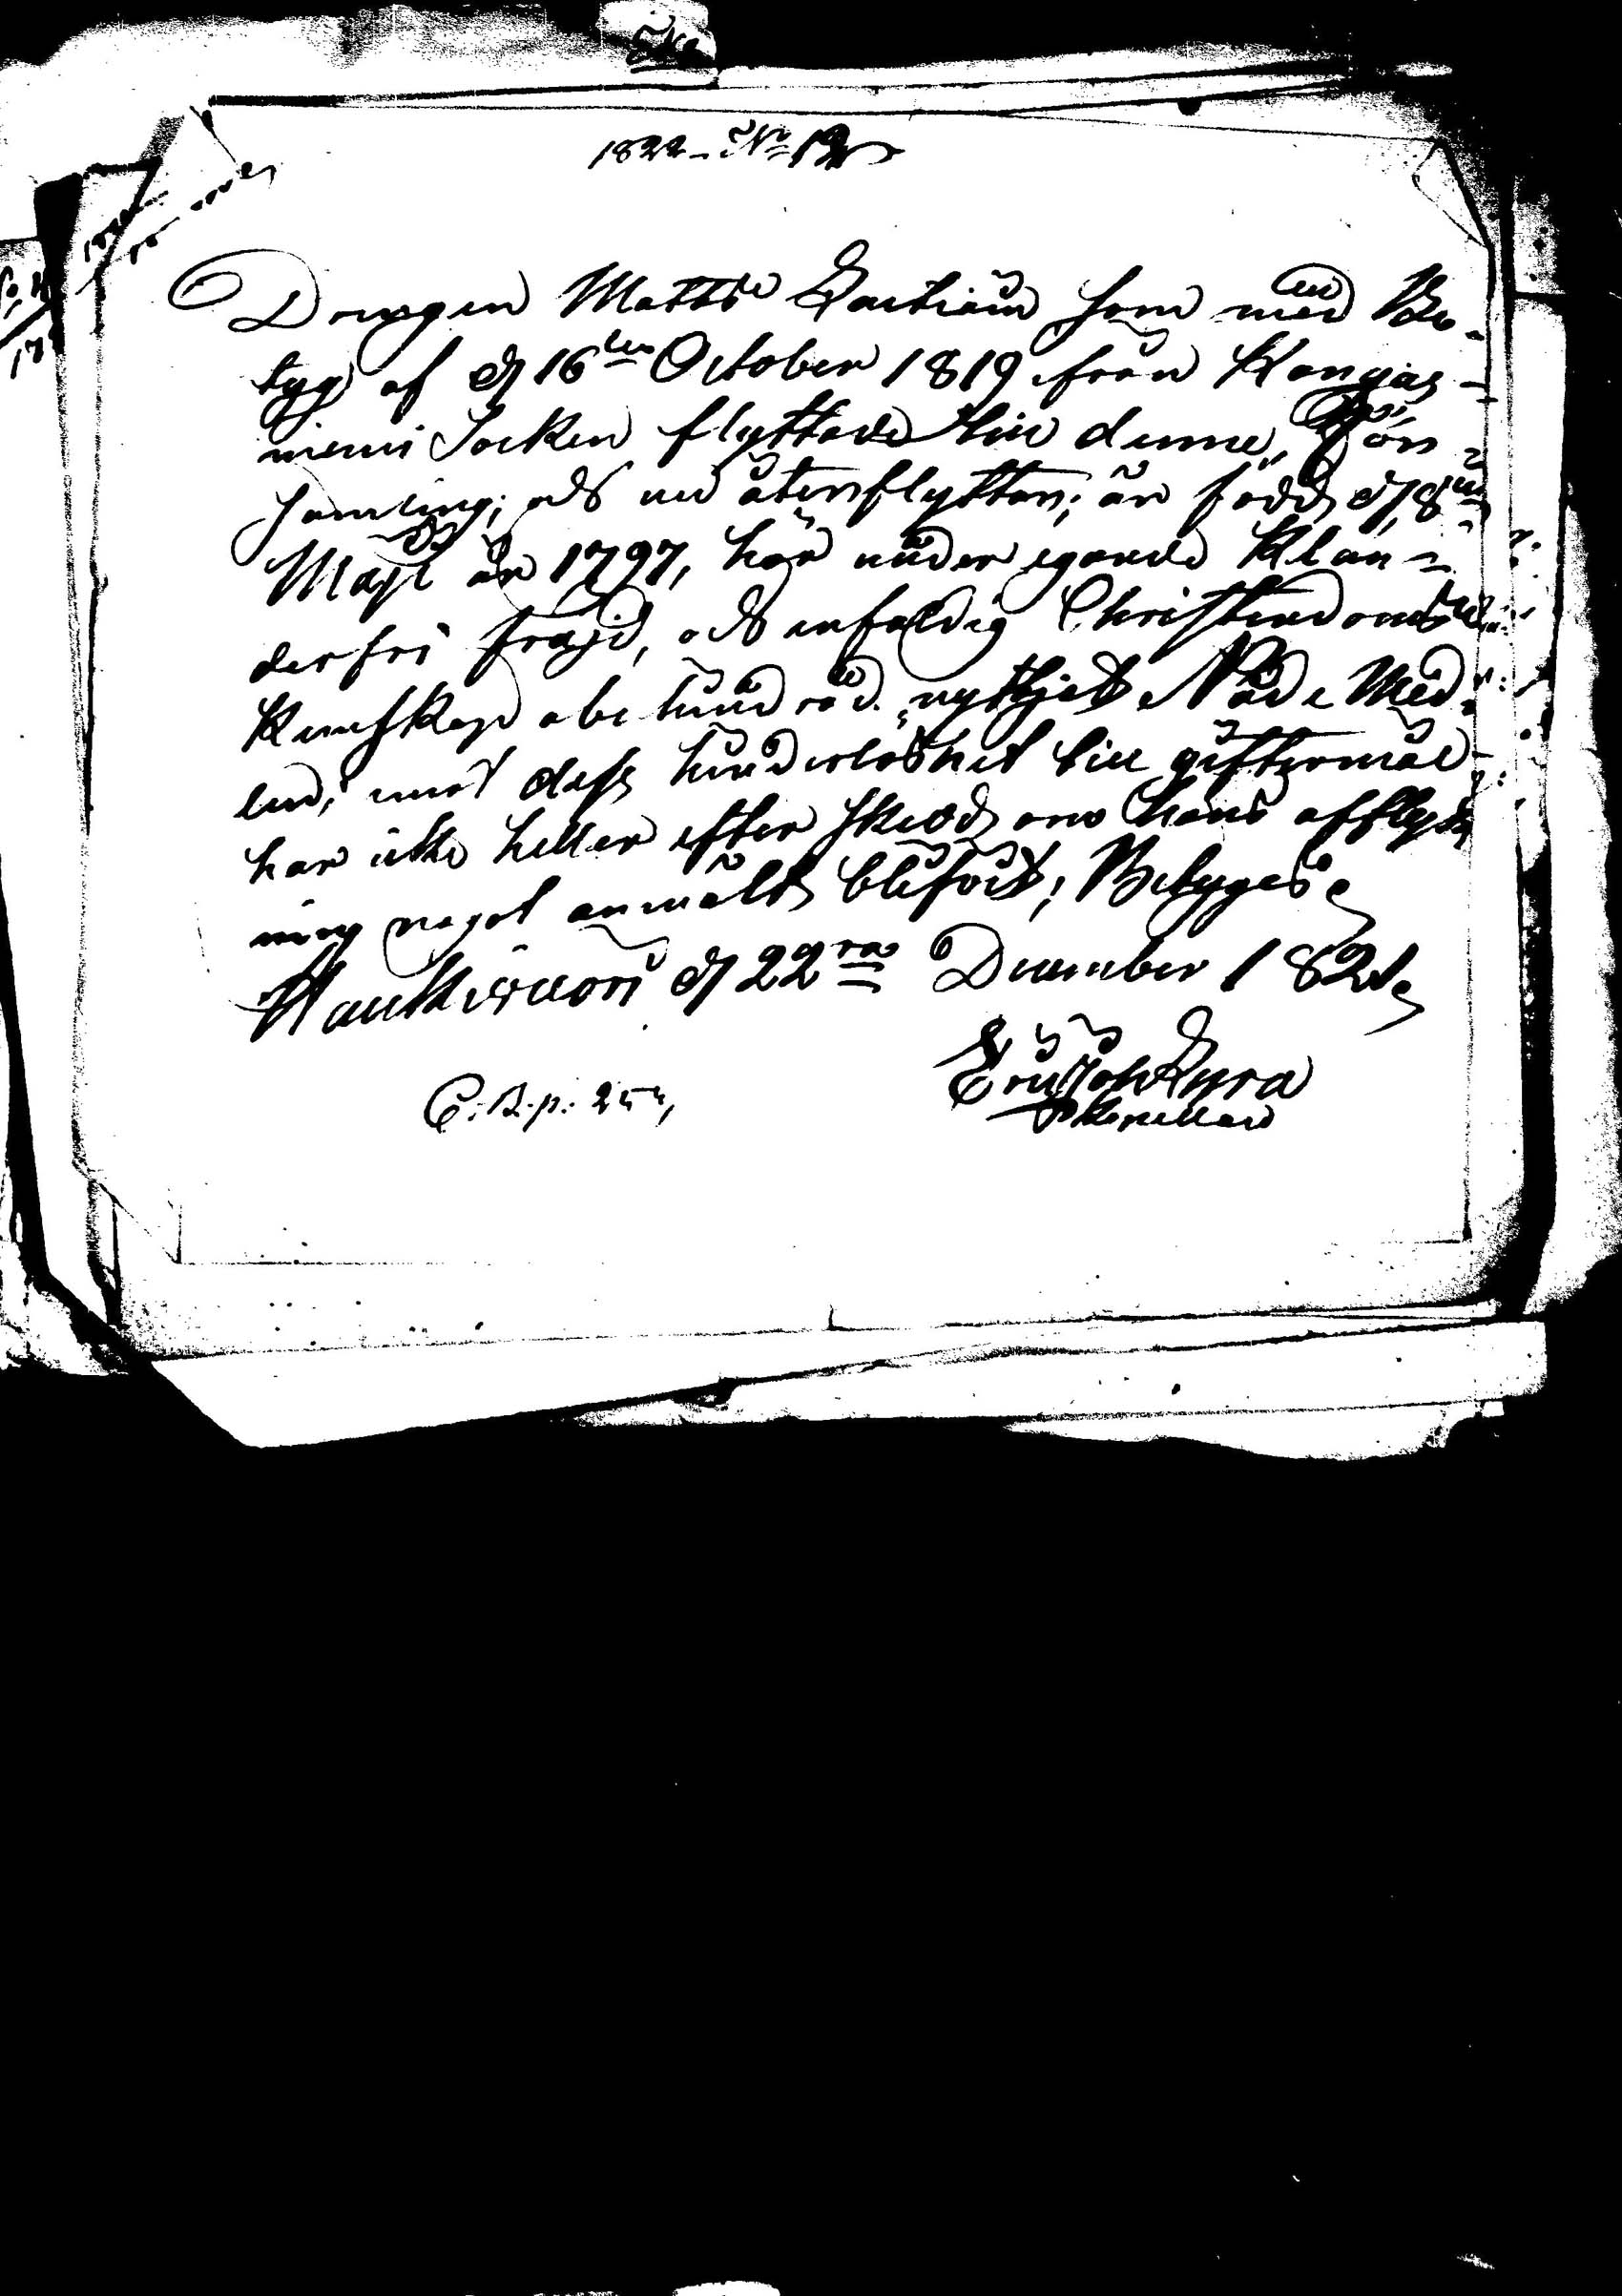 1822 - No 12
Drengen Matts Lartiain som med Be-
tyg af d 16de October 1819 från Kangas-
niemi Socken flyttade till denne För-
samling; och nu återflyttar; är född d 8de
Maji år 1797, har under egande Klan-
derfri frejd, och enfaldig Christendoms
Kunskap obehindrad nyttjat Nåde Med-
len; mot dess hinderlöshet till giftermål
har icke heller efter skedd om hans afflytt
ning något anmält blifvit; Betygas
Haukivuori d 22ra December 1821
Eric Joh Kyra
Kapellan
C.B.p. 254,